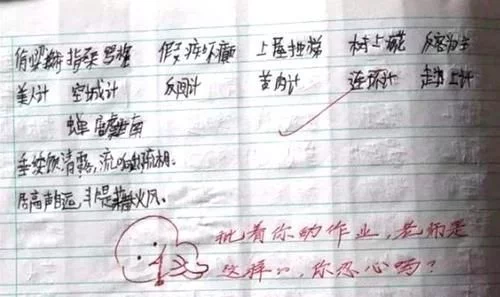 指桑骂槐 假痴不癫 上屋抽梯 树上开花 反客为主
美人计 空城计 反间计 苦肉计 连环计 走为上计
蝉 唐 虞世南
饮清露,流响出疏桐.
居高声自远,非是藉秋风.
批着你的作业,老师是
这样的,你忍心吗?